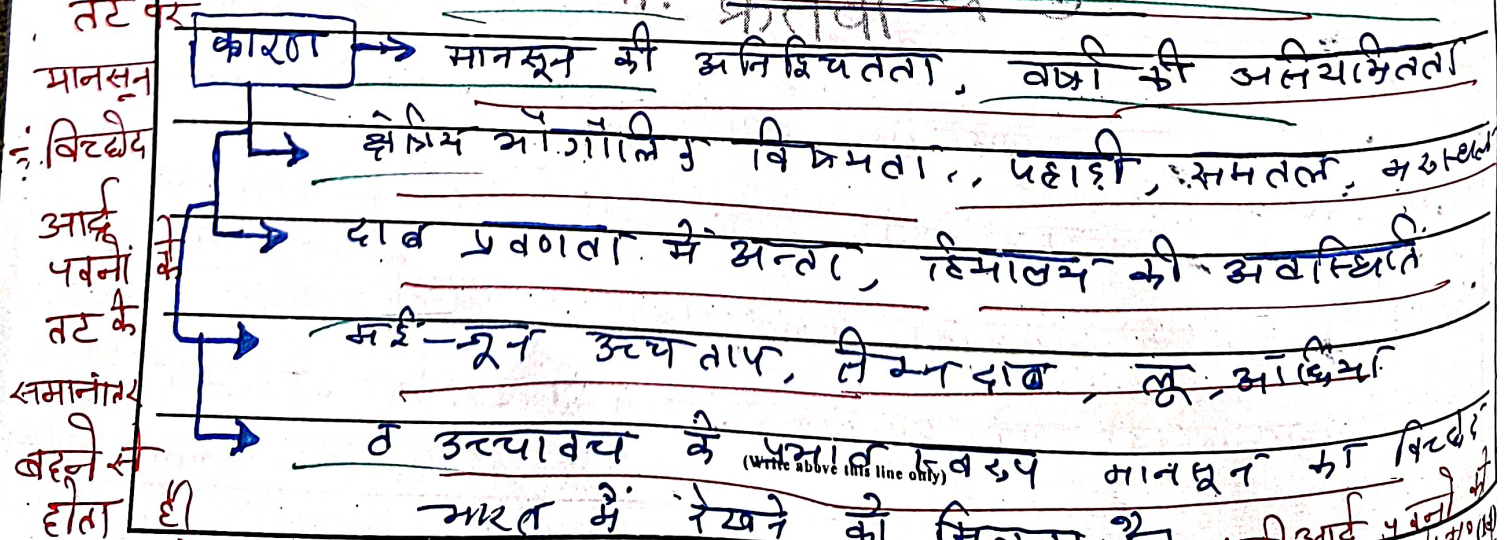 तट पर
मानसून
विच्छेद
आर्द्र
पवनों के
तट के
समानांतर
बहने से
होता है
कारण → मानसून की अनिश्चितता, वर्षा की अनियमितता
क्षेत्रिय भौगोलिक विषमता, पहाड़ी, समतल, मरुस्थल
दाब प्रवणता में अन्तर, हिमालय की अवस्थिति
मई-जून उच्च ताप, निम्न दाब, लू, आँधियाँ
व उच्चावच के प्रभाव स्वरूप मानसून का विच्छेद
(Write above this line only)
भारत में देखने को मिलता है
आर्द्र पवनों